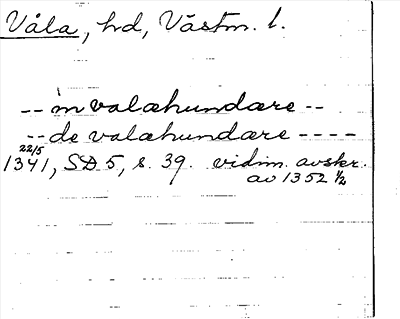 Våla, hd, Västm. l.
-- in valæhundære --
-- de valæhundære ----
22/5
1341, SD 5, s. 39. vidim. avskr.
av 1352 1/2